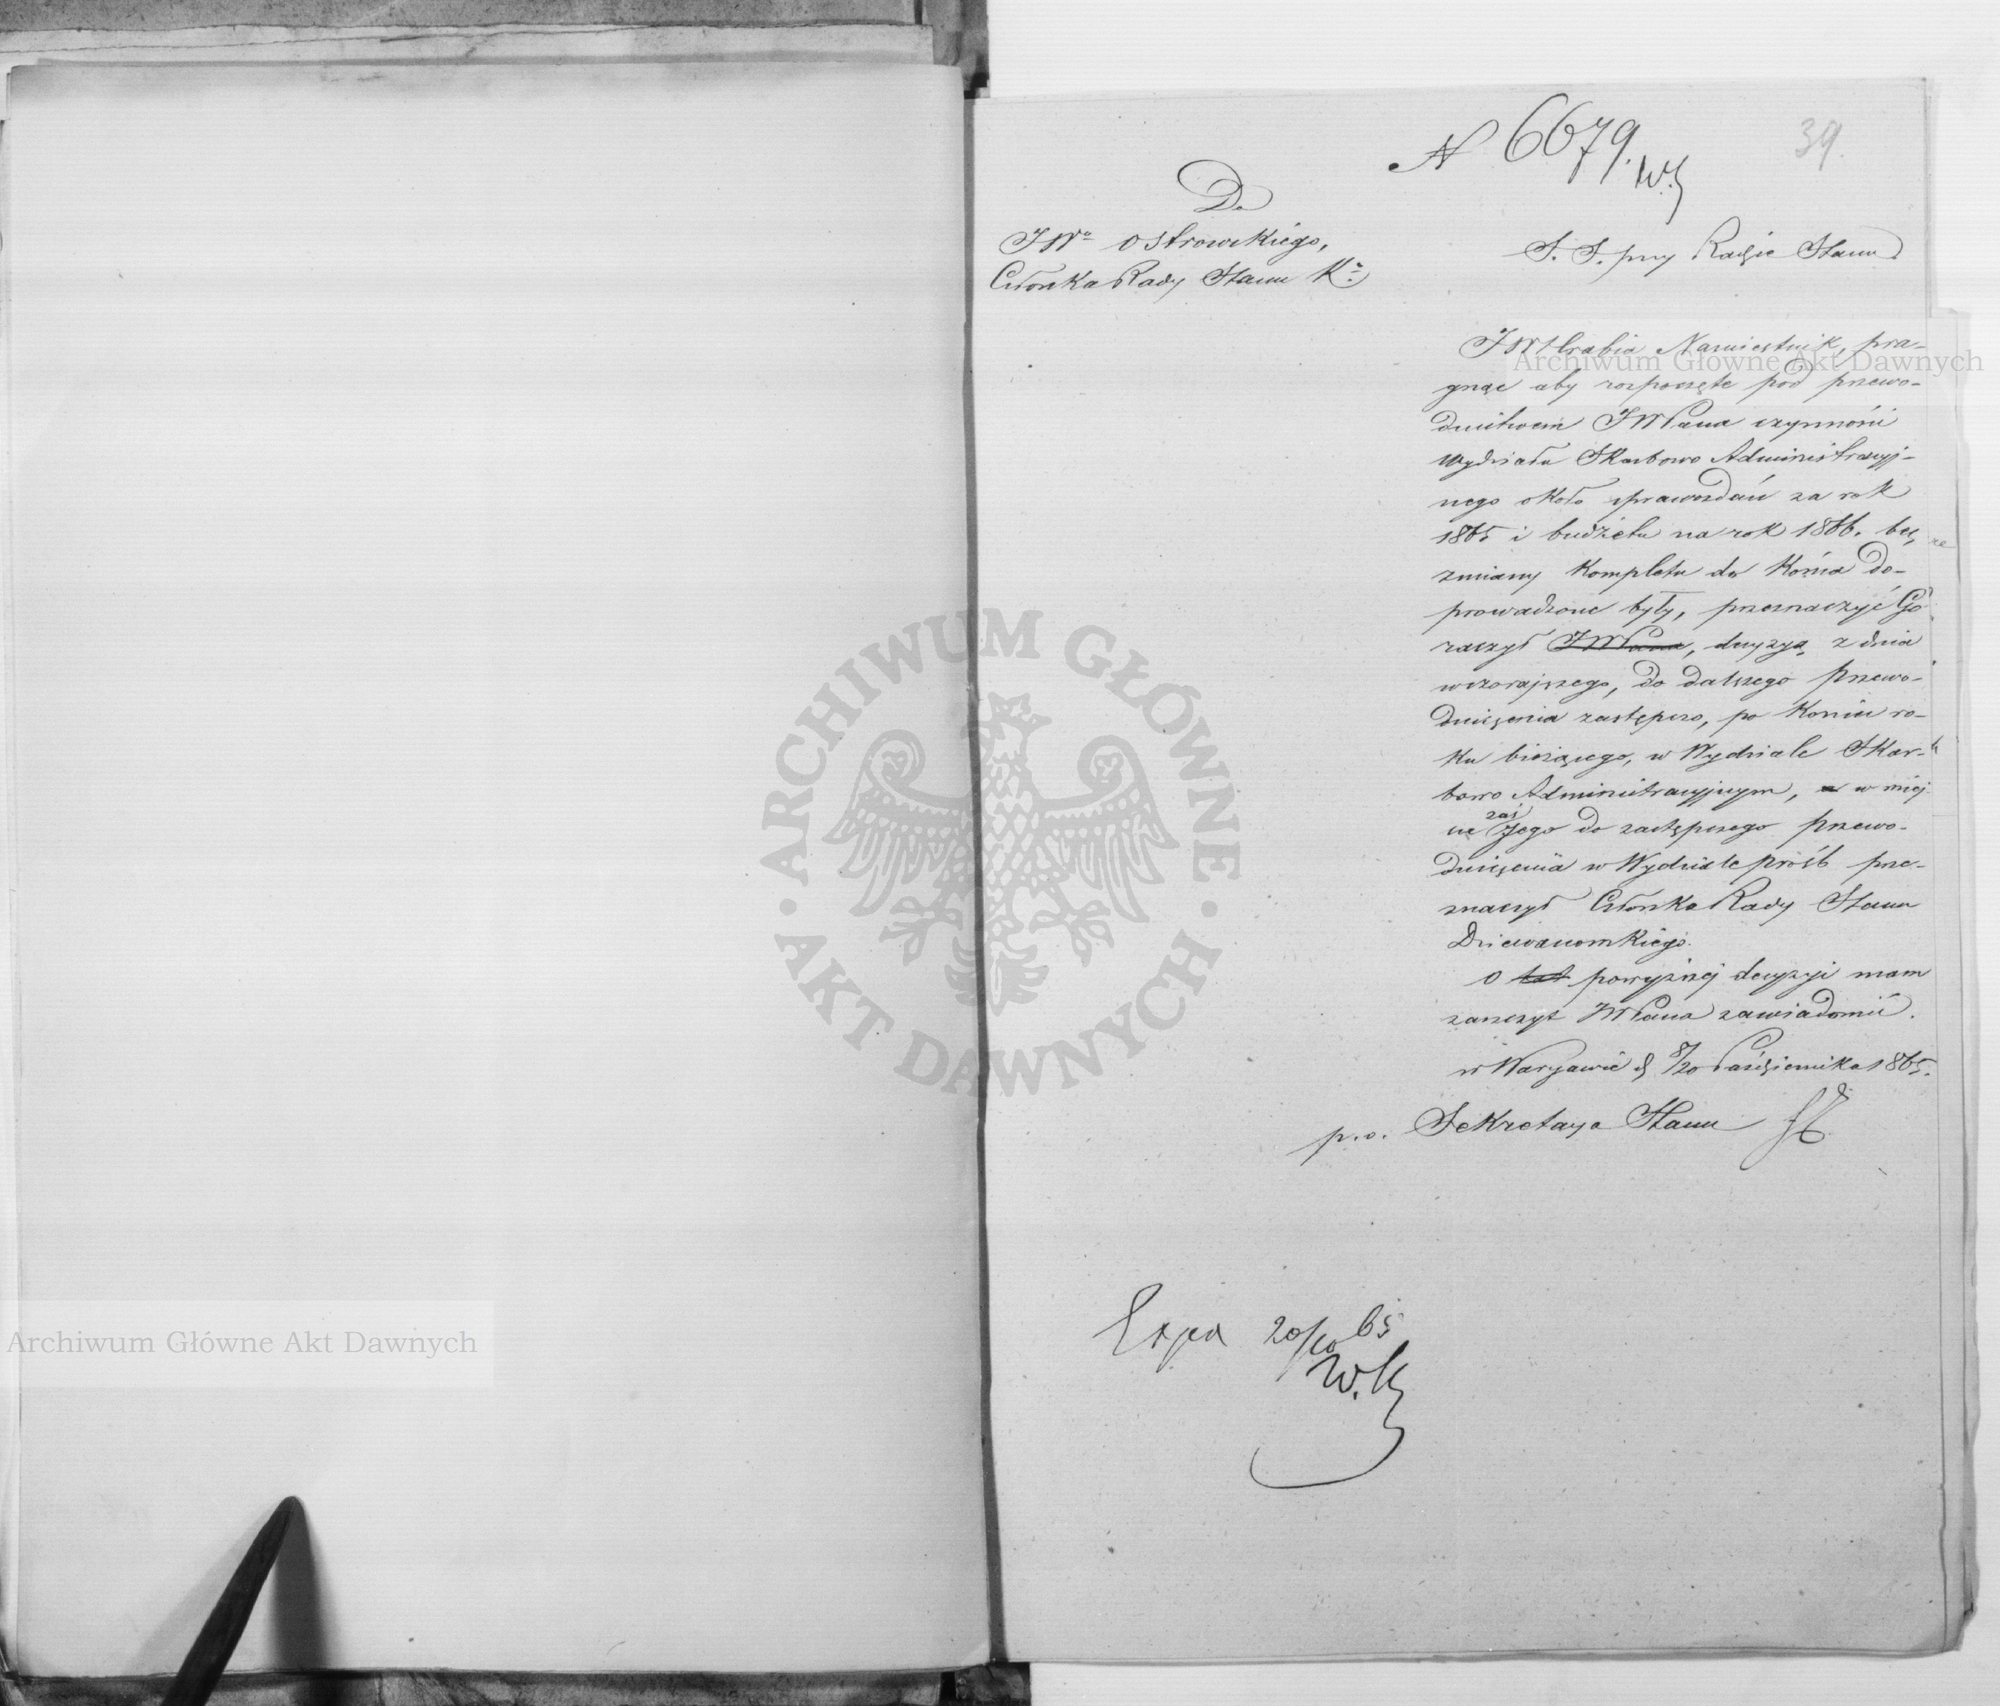 N 6679.
39.
Do
JWo Ostrowskiego,
Członka Rady Stanu K.
S. S. przy Radzie Stanu
JW Hrabia Namiestnik, pra-
gnąc aby rozpoczęte pod przewo-
dnictwem JWPana czynności
Wydziału Skarbowo Administracyj-
nego około sprawozdań za rok
1865 i budżetu na rok 1866. bez
zmiany Kompletu do Końca do-
prowadzone były, przeznaczyć Go
raczył JWPana, decyzyą z dnia
wczorajszego, do dalszego przewo-
dniczenia zastępczo, po Koniec ro-
ku bieżącego, w Wydziale Skar-
bowo Administracyjnym, w miej
sce zaś Jego do zastępczego przewo-
dniczenia w Wydziale próśb prze-
znaczył Członka Rady Stanu
Dziewanowskiego.
O powyższej decyzyi mam
zaszczyt JWPana zawiadomić.
w Warszawie d 8/20 Października 1865.
p. o. Sekretarza Stanu
Exped 20/10 65
W. K
Archiwum Główne Akt Dawnych
Archiwum Główne Akt Dawnych
ARCHIWUM GŁÓWNE
AKT DAWNYCH